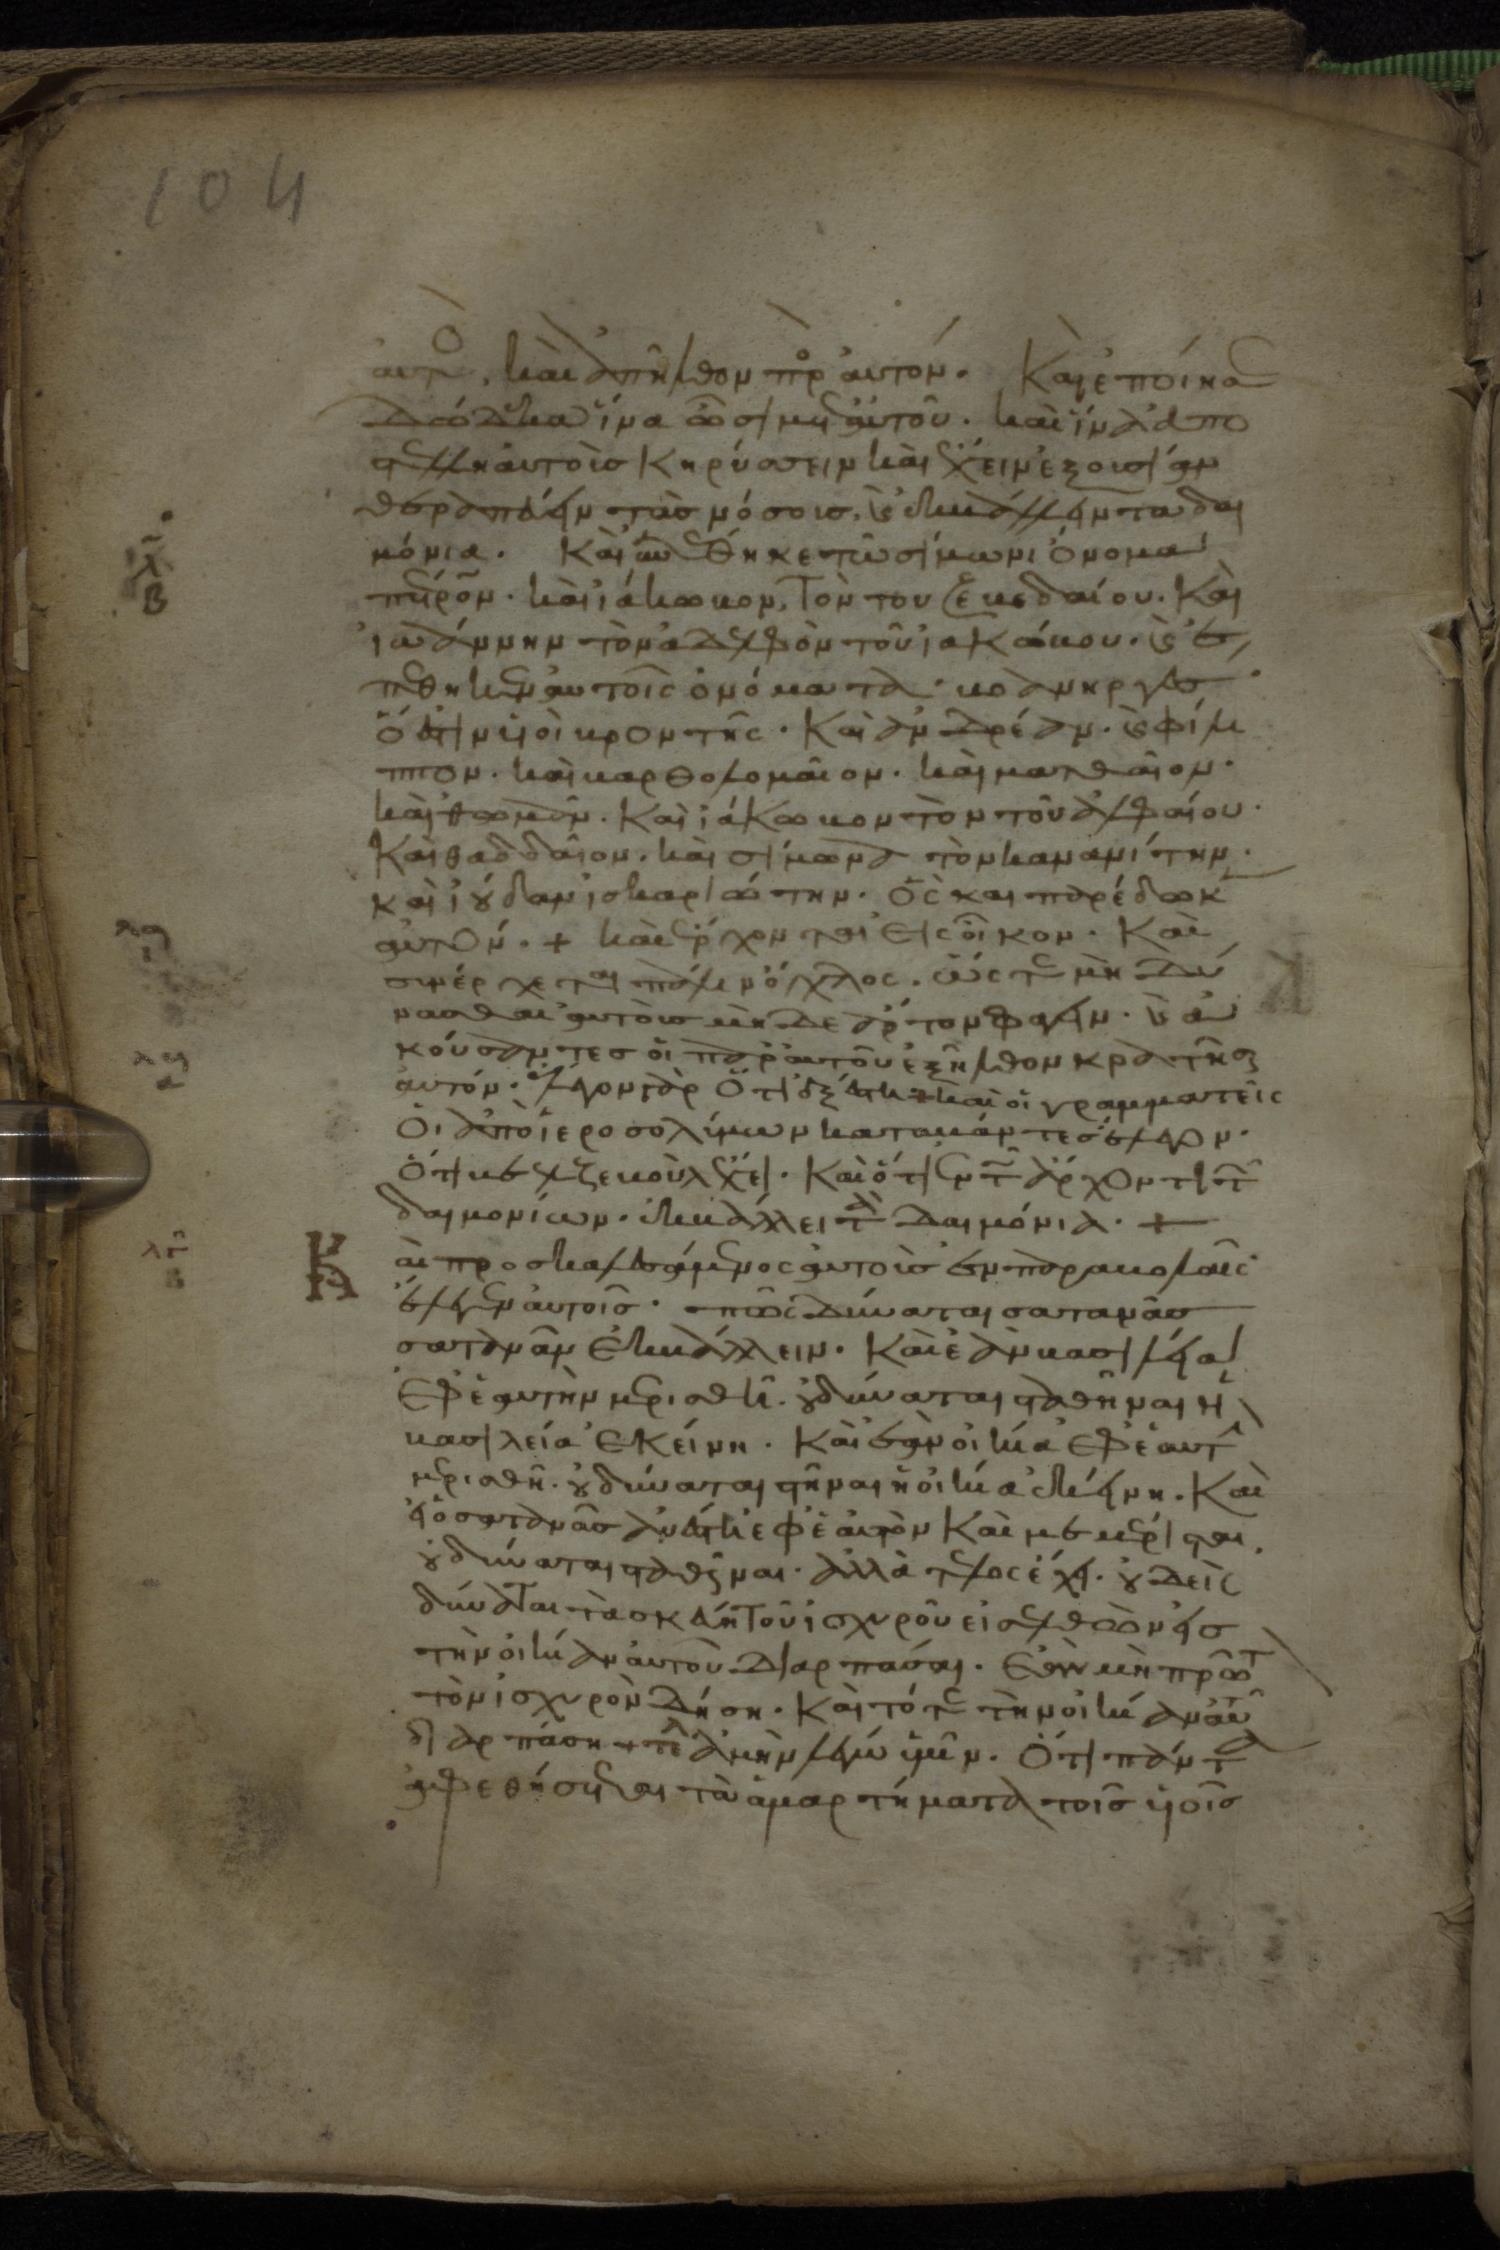 104
αὐτὸς, καὶ ἀπῆλθον πρ αὐτόν. Καὶ ἐποίησε
δώδεκα ἵνα ὦσι μετ αὐτοῦ. καὶ ἵνα ἀπο
στέλλη αὐτοὺς κηρύσσειν καὶ ἔχειν ἐξουσίαν
θεραπεύειν τὰς νόσους, καὶ ἐκβάλλειν τὰ δαι
μόνια. Καὶ ἐπέθηκε τῶ σίμωνι ὄνομα
πέτρον. καὶ ἰάκωβον, τὸν του ζεβεδαίου. Καὶ
ἰωάννην τὸν ἀδελφὸν τοῦ ἰακώβου. καὶ ἐ
πέθηκεν αὐτοῖς ὀνόματα. βοανηργὲς
ὅ ἐστιν υἱοὶ βροντῆς. Καὶ ἀνδρέαν. καὶ φίλι
ππον. καὶ βαρθολομαῖον. καὶ ματθαῖον.
καὶ θωμᾶν. Καὶ ἰάκωβον τὸν τοῦ ἀλφαίου.
Καὶ θαδδαῖον. καὶ σίμωνα τὸν κανανίτην.
καὶ ἰούδαν ἰσκαριώτην. ὃς καὶ παρέδωκεν
αὐτόν. + καὶ ἔρχονται εἰς οἶκον. Καὶ
συνέρχεται πάλιν ὄχλος. ὥστε μὴ δύ
νασθαι αὐτοὺς μὴ δε ἄρτον φαγεῖν. καὶ ἀ
κούσαντες οἱ παρ αὐτοῦ ἐξῆλθον κρατῆσαι
αὐτόν. ἔλεγον γὰρ ὅτι ἐξέστη + καὶ οἱ γραμματεῖς
Οἱ ἀπὸ ἱεροσολύμων καταβάντες ἔλεγον.
ὅτι βεελζεβοὺλ ἔχει. Καὶ ὅτι ἐν τῶ ἄρχοντι τῶν
δαιμονίων. ἐκβάλλει τὰ δαιμόνια. +
Καὶ προσκαλεσάμενος αὐτοὺς ἐν παραβολαῖς
ἔλεγεν αὐτοῖς. πῶς δύναται σατανᾶς
σατανᾶν ἐκβάλλειν. Καὶ ἐὰν βασιλεία
ἐφ ἑαυτὴν μερισθῆ. οὐ δύναται σταθῆναι ἡ
βασιλεία ἐκείνη. Καὶ ἐὰν οἰκία ἐφ ἑαυτὴν
μερισθῆ. οὐ δύναται στῆναι ἡ οἰκία ἐκείνη. Καὶ
εἰ ὁ σατανᾶς ἀνέστη ἐφ ἑαυτὸν καὶ μεμέρισται.
οὐ δύναται σταθῆναι. ἀλλὰ τέλος ἔχει. οὐ δεὶς
δύναται τὰ σκεύη τοῦ ἰσχυροῦ εἰσελθὼν εἰς
τὴν οἰκίαν αὐτοῦ διαρπάσαι. ἐὰν μὴ πρῶτον
τὸν ἰσχυρὸν δήση. Καὶ τότε τὴν οἰκίαν αὐτοῦ
διαρπάση + τέλ ἀμὴν λέγω ὑμῖν. ὅτι πάντα
ἀφεθήσεται τὰ ἁμαρτήματα τοῖς υἱοῖς